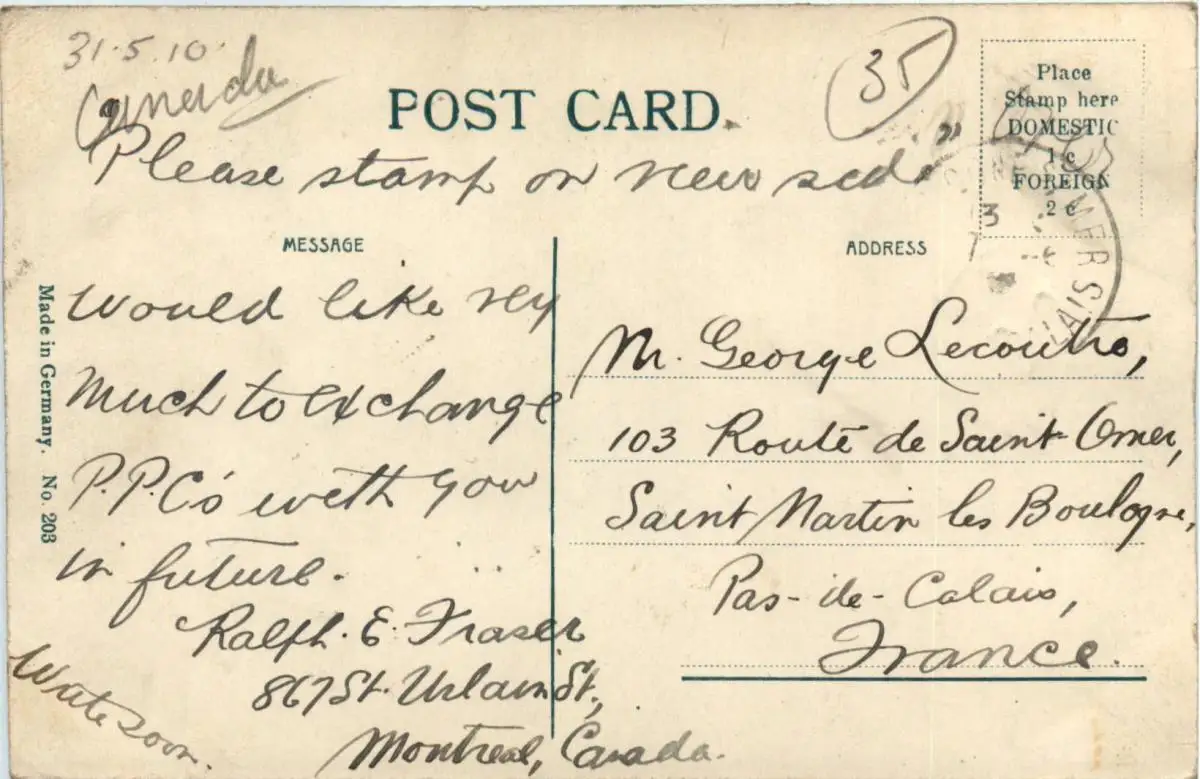 31·5·10·
Canada
35
POST CARD.
Place
Stamp here
DOMESTIC
1 c
FOREIGN
2 c
Please stamp on view side
MER
3
MESSAGE
ADDRESS
Would like very
much to exchange
P.P.C's with you
in future.
Ralph. E. Fraser
867 St. Urbain St,
Montreal, Canada.
Write soon.
Made in Germany. No. 203
Mr. George Lecoutre,
103 Route de Saint-Omer,
Saint Martin les Boulogne,
Pas-de-Calais,
France.